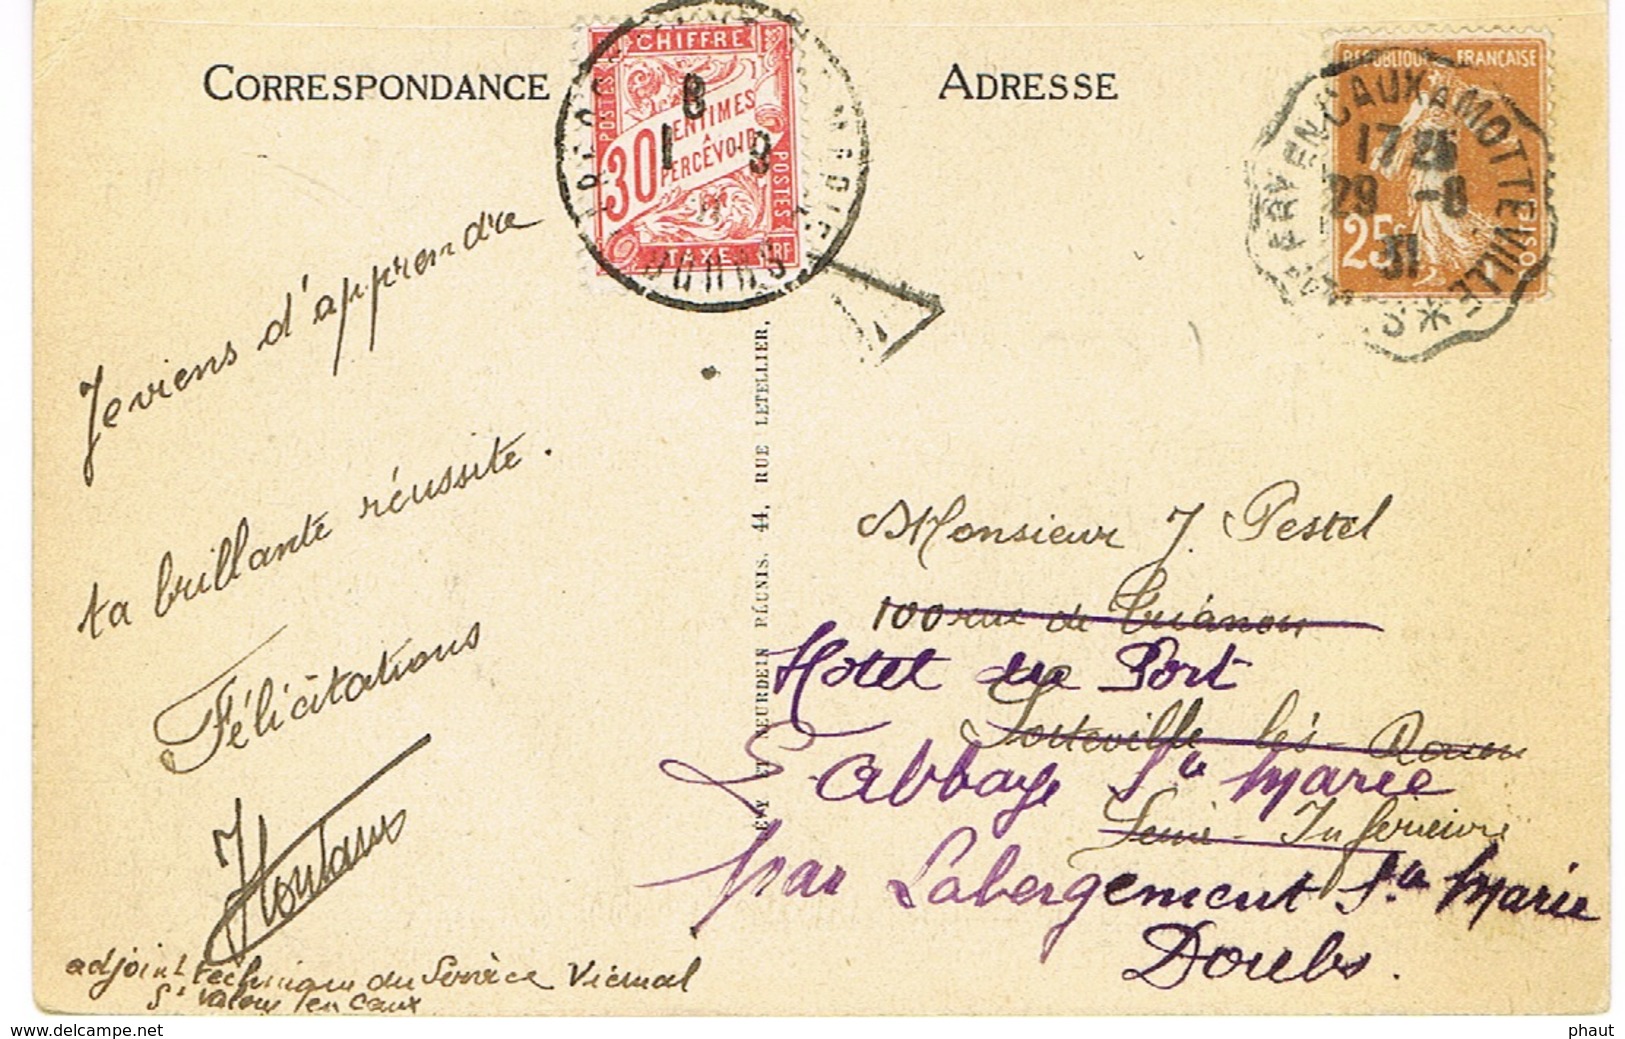 CORRESPONDANCE
ADRESSE
CHIFFRE
POSTES
30 CENTIMES
A
PERCEVOIR
POSTES
TAXE RF
8
1 8
DOUBS
REPUBLIQUE FRANÇAISE
25c
POSTES
ERY EN CAUX A MOTTEVILLE
17 25
29 -8
31
Je viens d'apprendre
ta brillante réussite.
Félicitations
adjoint technique du Service Vicinal
St Valery en Caux
NEURDEIN RÉUNIS. 44, RUE LETELLIER,
Monsieur J. Pestel
100 rue de Trianon
Hotel du Port
Sotteville lès-Rouen
Abbaye Ste Marie
Seine-Inférieure
par Labergement Ste Marie
Doubs.
www.delcampe.net
phaut